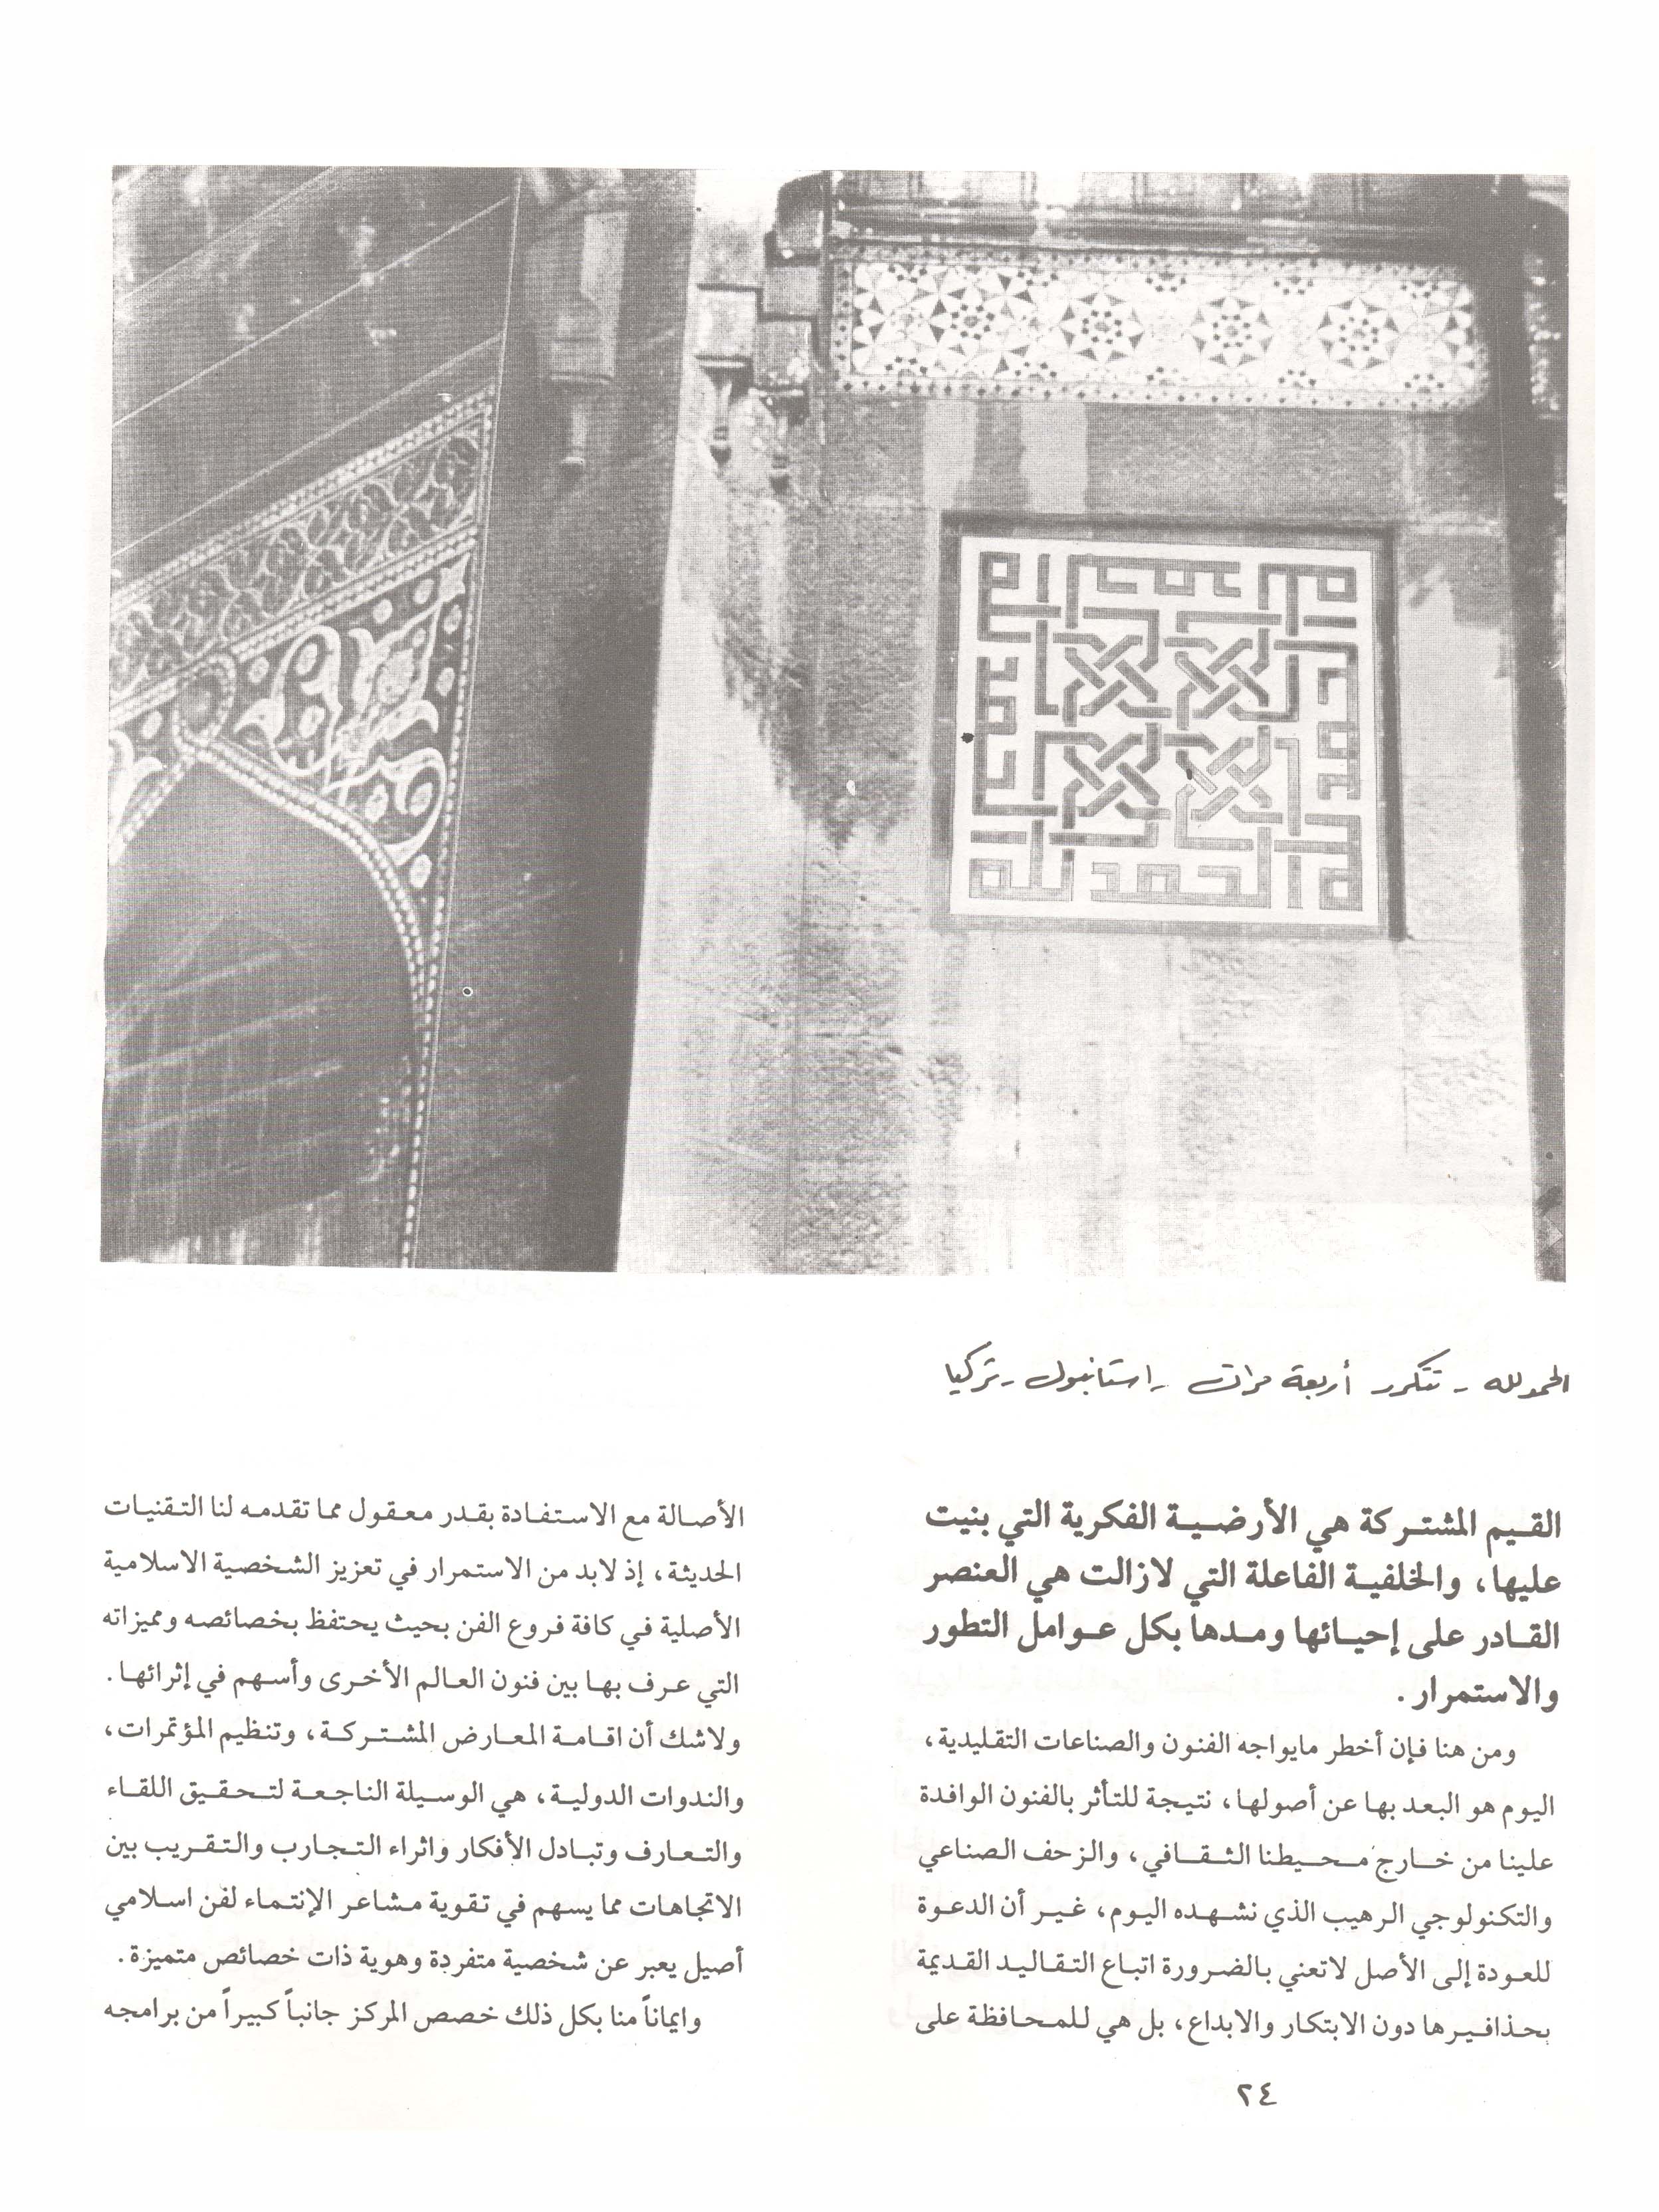 الحمد لله
الحمد لله
الحمد لله
الحمد لله
الحمد لله - تتكرر أربعة مرات - استانبول - تركيا
القيم المشتركة هي الأرضية الفكرية التي بنيت
عليها، والخلفية الفاعلة التي لازالت هي العنصر
القادر على إحيائها ومدها بكل عوامل التطور
والاستمرار .
ومن هنا فإن أخطر مايواجه الفنون والصناعات التقليدية،
اليوم هو البعد بها عن أصولها، نتيجة للتأثر بالفنون الوافدة
علينا من خارج محيطنا الثقافي، والزحف الصناعي
والتكنولوجي الرهيب الذي نشهده اليوم، غير أن الدعوة
للعودة إلى الأصل لاتعني بالضرورة اتباع التقاليد القديمة
بحذافيرها دون الابتكار والابداع، بل هي للمحافظة على
الأصالة مع الاستفادة بقدر معقول مما تقدمه لنا التقنيات
الحديثة، إذ لابد من الاستمرار في تعزيز الشخصية الاسلامية
الأصلية في كافة فروع الفن بحيث يحتفظ بخصائصه ومميزاته
التي عرف بها بين فنون العالم الأخرى وأسهم في إثرائها .
ولاشك أن اقامة المعارض المشتركة، وتنظيم المؤتمرات،
والندوات الدولية، هي الوسيلة الناجعة لتحقيق اللقاء
والتعارف وتبادل الأفكار واثراء التجارب والتقريب بين
الاتجاهات مما يسهم في تقوية مشاعر الإنتماء لفن اسلامي
أصيل يعبر عن شخصية متفردة وهوية ذات خصائص متميزة .
وايماناً منا بكل ذلك خصص المركز جانباً كبيراً من برامجه
٢٤